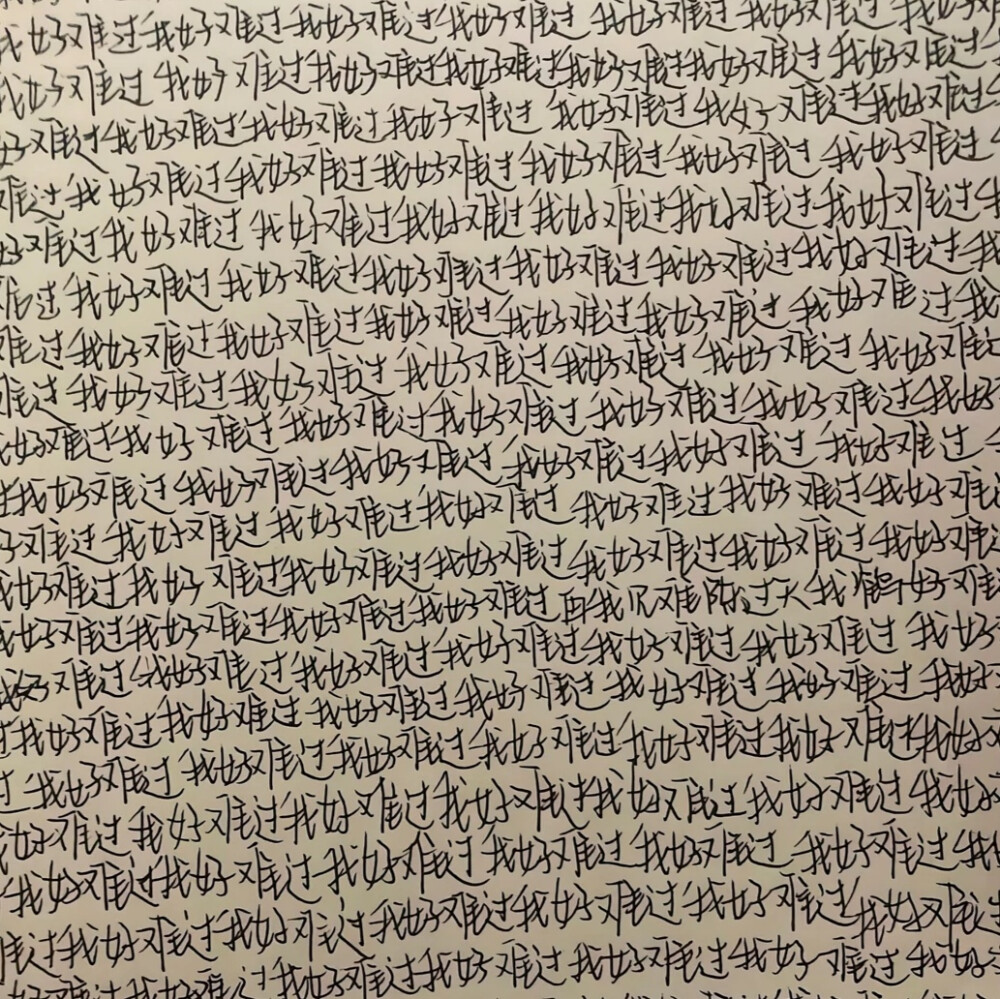 我好难过我好难过我好难过我好难过 我好难过我好难过 我好难
我好难过 我好难过我好难过我好难过我好难过我好难过 我好难过
好难过我好难过我好难过我好难过 我好难过我好难过我好难过
难过我好难过我好难过我好难过我好难过我好难过 我好难过
好难过我好难过 我好难过我好难过 我好难过我好难过我好难过
难过我好难过 我好难过我好难过我好难过我好难过我好难过我
难过我好难过我好难过我好难过我好难过我好难过 我好难过我
难过 我好难过我好难过 我好难过我好难过 我好难过我好难过
我好难过我好难过我好难过我好难过 我好难过我好难过我好
过我好难过我好难过我好难过 我好难过我好难过 我好难过
好难过我好难过我好难过我好难过 我好难过我好难过我好难
我好难过我好难过我好难过我好难过我好难过我好难过我好难过
我好难过我好难过我好难过我好难过 我 难 过 我 好难
我好难过我好难过我好难过我好难过我好难过我好难过 我好
过我好难过我好难过 我好难过我好难过 我好难过我好难过我好
过 我好难过 我好难过我好难过我好难过我好难过我好难过我好
好难过我好难过我好难过我好难过我好难过我好难过我好
我好难过我好难过我好难过我好难过我好难过 我好难过我
难过我好难过我好难过我好难过我好难过我好难过我好难过
好难过我好难过我好难过我好难过我好难过我好难过我好